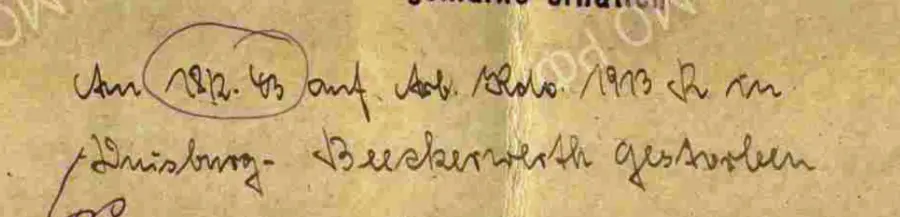 Am 18.12.43 auf. Arb. Kdo. 1913 R in
Duisburg- Beeckerwerth gestorben